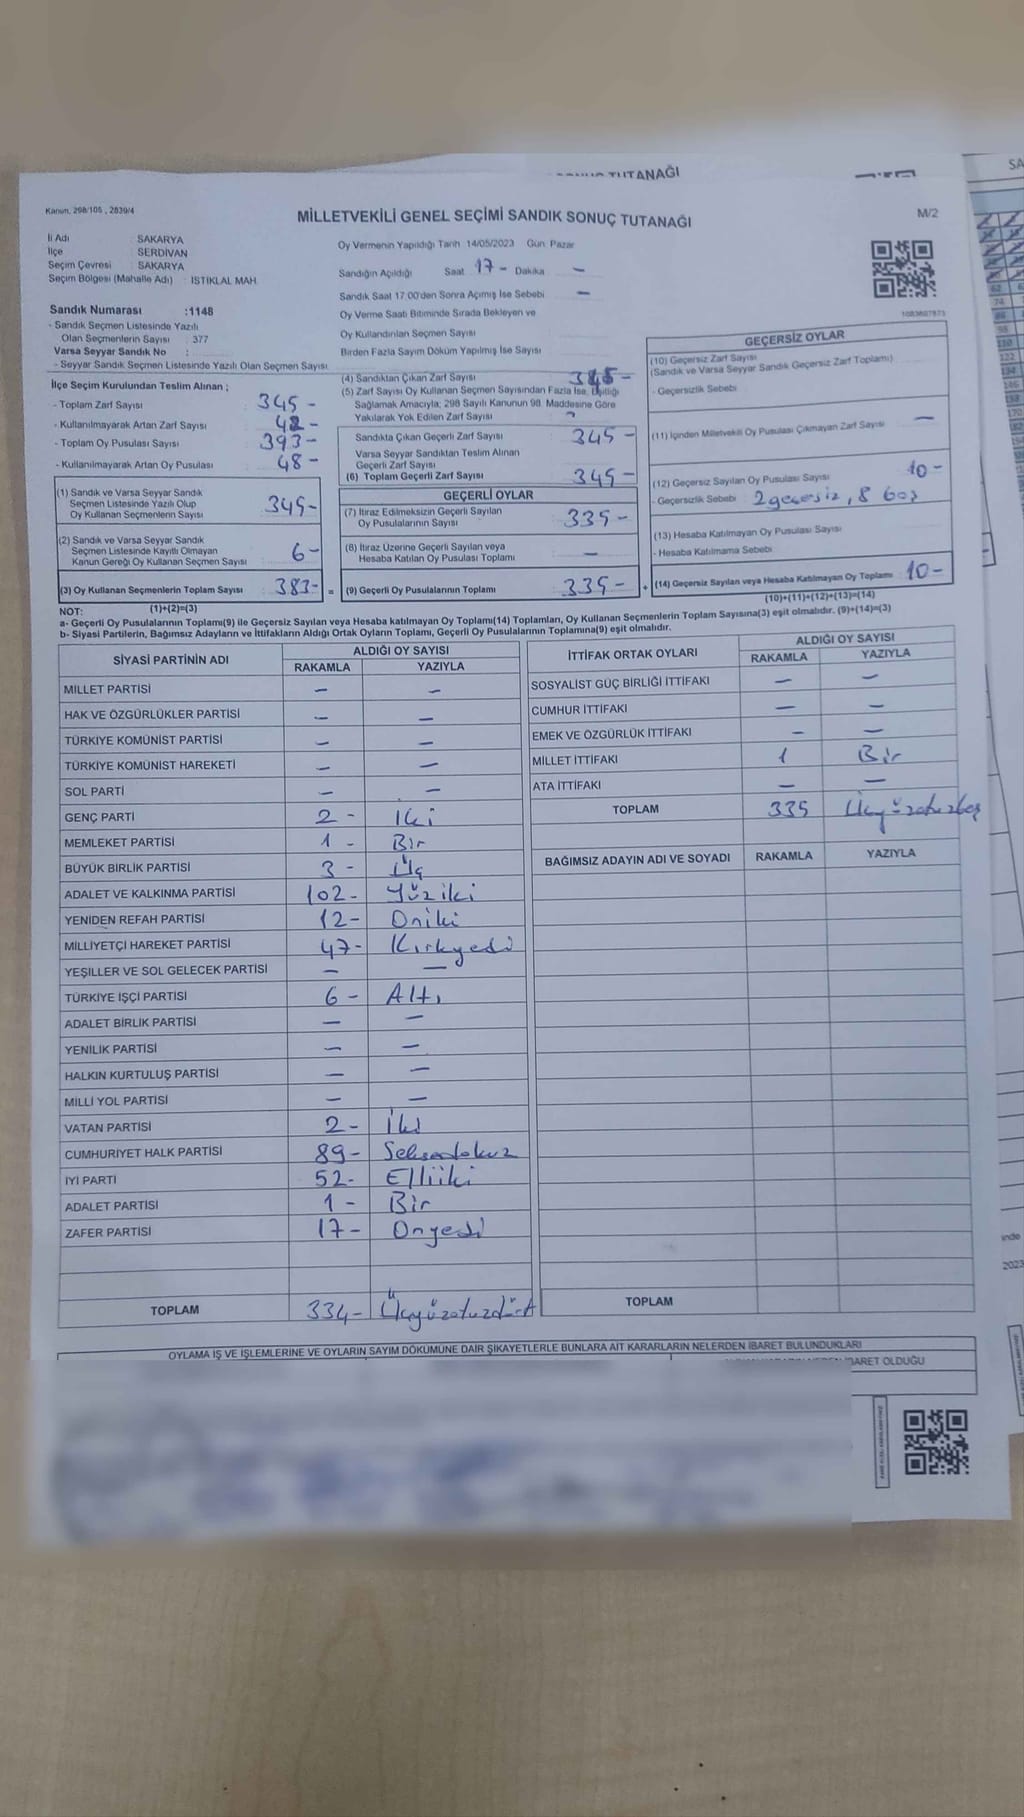 TUTANAĞI
SA
Kanun, 298/105 , 2839/4
MİLLETVEKİLİ GENEL SEÇİMİ SANDIK SONUÇ TUTANAĞI
M/2
İl Adı : SAKARYA
İlçe : SERDİVAN
Seçim Çevresi : SAKARYA
Seçim Bölgesi (Mahalle Adı) : İSTİKLAL MAH.
Oy Vermenin Yapıldığı Tarih 14/05/2023 Gün: Pazar
Sandığın Açıldığı Saat 17 - Dakika —
Sandık Saat 17:00'den Sonra Açımış İse Sebebi —
Oy Verme Saati Bitiminde Sırada Bekleyen ve
Oy Kullandırılan Seçmen Sayısı
Birden Fazla Sayım Döküm Yapılmış İse Sayısı
Sandık Numarası :1148
- Sandık Seçmen Listesinde Yazılı
Olan Seçmenlerin Sayısı : 377
Varsa Seyyar Sandık No :
- Seyyar Sandık Seçmen Listesinde Yazılı Olan Seçmen Sayısı
İlçe Seçim Kurulundan Teslim Alınan ;
- Toplam Zarf Sayısı 345 -
- Kullanılmayarak Artan Zarf Sayısı 48 -
- Toplam Oy Pusulası Sayısı 393 -
- Kullanılmayarak Artan Oy Pusulası 48 -
(1) Sandık ve Varsa Seyyar Sandık
Seçmen Listesinde Yazılı Olup
Oy Kullanan Seçmenlerin Sayısı 345 -
(2) Sandık ve Varsa Seyyar Sandık
Seçmen Listesinde Kayıtlı Olmayan
Kanun Gereği Oy Kullanan Seçmen Sayısı 6 -
(3) Oy Kullanan Seçmenlerin Toplam Sayısı 383 -
(1)+(2)=(3)
(4) Sandıktan Çıkan Zarf Sayısı 345 -
(5) Zarf Sayısı Oy Kullanan Seçmen Sayısından Fazla İse, Eşitliği
Sağlamak Amacıyla; 298 Sayılı Kanunun 98. Maddesine Göre
Yakılarak Yok Edilen Zarf Sayısı
Sandıkta Çıkan Geçerli Zarf Sayısı 345 -
Varsa Seyyar Sandıktan Teslim Alınan
Geçerli Zarf Sayısı
(6) Toplam Geçerli Zarf Sayısı 345 -
GEÇERLİ OYLAR
(7) İtiraz Edilmeksizin Geçerli Sayılan
Oy Pusulalarının Sayısı 335 -
(8) İtiraz Üzerine Geçerli Sayılan veya
Hesaba Katılan Oy Pusulası Toplamı —
= (9) Geçerli Oy Pusulalarının Toplamı 335 -
GEÇERSİZ OYLAR
(10) Geçersiz Zarf Sayısı
(Sandık ve Varsa Seyyar Sandık Geçersiz Zarf Toplamı)
- Geçersizlik Sebebi
(11) İçinden Milletvekili Oy Pusulası Çıkmayan Zarf Sayısı —
(12) Geçersiz Sayılan Oy Pusulası Sayısı 10 -
- Geçersizlik Sebebi 2 geçersiz, 8 boş
(13) Hesaba Katılmayan Oy Pusulası Sayısı
- Hesaba Katılmama Sebebi
+ (14) Geçersiz Sayılan veya Hesaba Katılmayan Oy Toplamı 10 -
(10)+(11)+(12)+(13)=(14)
NOT:
a- Geçerli Oy Pusulalarının Toplamı(9) ile Geçersiz Sayılan veya Hesaba katılmayan Oy Toplamı(14) Toplamları, Oy Kullanan Seçmenlerin Toplam Sayısına(3) eşit olmalıdır. (9)+(14)=(3)
b- Siyasi Partilerin, Bağımsız Adayların ve İttifakların Aldığı Ortak Oyların Toplamı, Geçerli Oy Pusulalarının Toplamına(9) eşit olmalıdır.
SİYASİ PARTİNİN ADI ALDIĞI OY SAYISI
RAKAMLA YAZIYLA
MİLLET PARTİSİ — —
HAK VE ÖZGÜRLÜKLER PARTİSİ — —
TÜRKİYE KOMÜNİST PARTİSİ — —
TÜRKİYE KOMÜNİST HAREKETİ — —
SOL PARTİ — —
GENÇ PARTİ 2 - İki
MEMLEKET PARTİSİ 1 - Bir
BÜYÜK BİRLİK PARTİSİ 3 - Üç
ADALET VE KALKINMA PARTİSİ 102 - Yüziki
YENİDEN REFAH PARTİSİ 12 - Oniki
MİLLİYETÇİ HAREKET PARTİSİ 47 - Kırkyedi
YEŞİLLER VE SOL GELECEK PARTİSİ — —
TÜRKİYE İŞÇİ PARTİSİ 6 - Altı
ADALET BİRLİK PARTİSİ — —
YENİLİK PARTİSİ — —
HALKIN KURTULUŞ PARTİSİ — —
MİLLİ YOL PARTİSİ — —
VATAN PARTİSİ 2 - İki
CUMHURİYET HALK PARTİSİ 89 - Seksendokuz
İYİ PARTİ 52 - Elliiki
ADALET PARTİSİ 1 - Bir
ZAFER PARTİSİ 17 - Onyedi
TOPLAM 334 - Üçyüzotuzdört
İTTİFAK ORTAK OYLARI ALDIĞI OY SAYISI
RAKAMLA YAZIYLA
SOSYALİST GÜÇ BİRLİĞİ İTTİFAKI — —
CUMHUR İTTİFAKI — —
EMEK VE ÖZGÜRLÜK İTTİFAKI — —
MİLLET İTTİFAKI 1 Bir
ATA İTTİFAKI — —
TOPLAM 335 Üçyüzotuzbeş
BAĞIMSIZ ADAYIN ADI VE SOYADI RAKAMLA YAZIYLA
TOPLAM
OYLAMA İŞ VE İŞLEMLERİNE VE OYLARIN SAYIM DÖKÜMÜNE DAİR ŞİKAYETLERLE BUNLARA AİT KARARLARIN NELERDEN İBARET BULUNDUKLARI
İBARET OLDUĞU